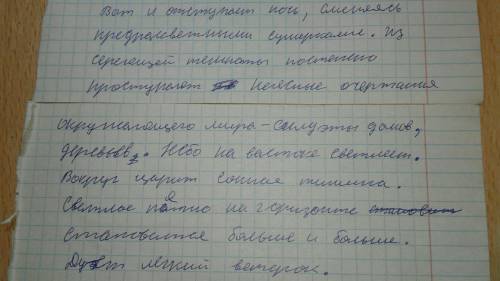 Вот и отступает ночь, сменяясь
предрассветными сумерками. Из
сереющей темноты постепено
проступают неясные очертания
окружающего мира – силуэты домов,
деревьев. Небо на востоке светлеет.
Вокруг царит сонная тишина.
Светлое пятно на горизонте
становится больше и больше.
Дует легкий ветерок.